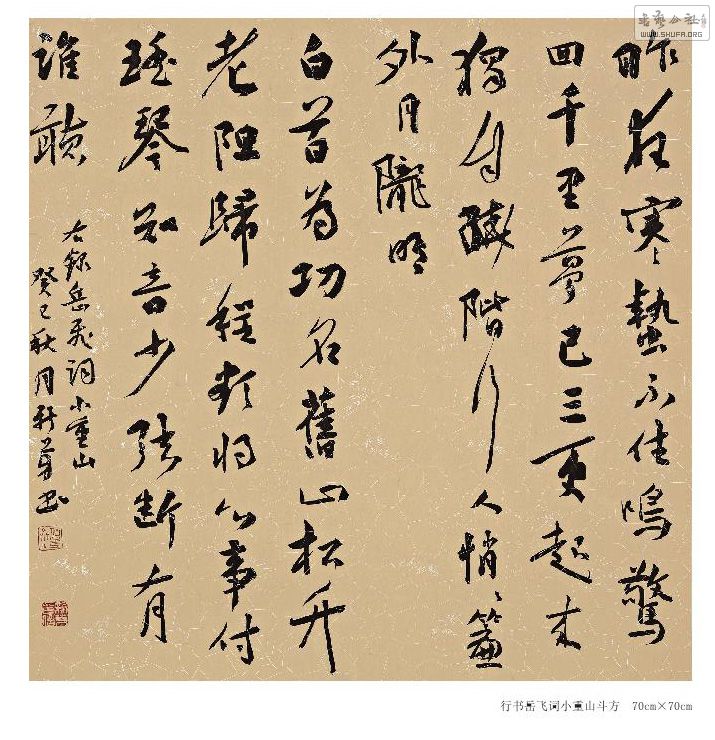 书艺公社
WWW.SHUFA.ORG
昨夜寒〻蟄不住鳴驚
回千里夢已三更起来
獨自繞階行人悄〻簾
外月朧明
白首为功名舊山松竹
老阻歸程欲将心事付
瑶琴知音少弦断有
誰聽
右録岳飛詞小重山
癸巳秋月书
行书岳飞词小重山斗方 70cm×70cm